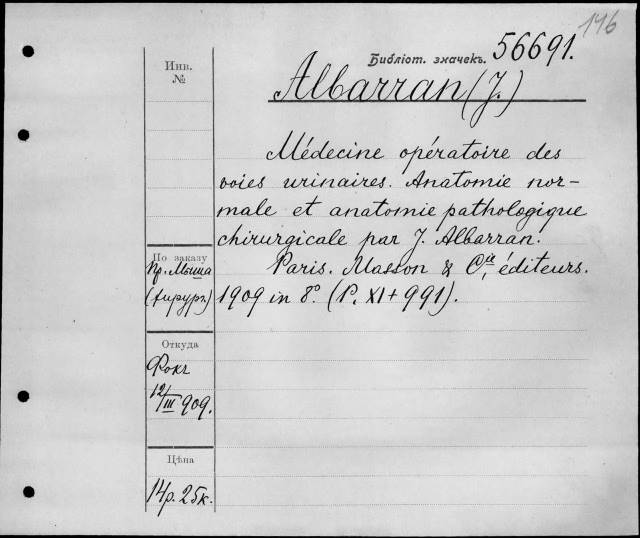 146
Библіот. значекъ. 56691.
Инв.
№
Albarran (J.)
Médecine opératoire des
voies urinaires. Anatomie nor-
male et anatomie pathologique
chirurgicale par J. Albarran.
Paris. Masson & Cie, éditeurs.
1909 in 8º. (P. XI + 991).
По заказу
Пр. Мыша
(хирург.)
Откуда
Фокъ
12/III 909.
Цѣна
14р. 25к.